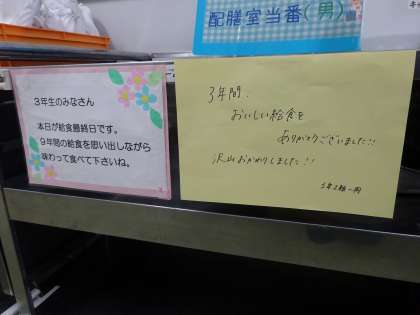 配膳室当番(男)
3年生のみなさん
本日が給食最終日です。
9年間の給食を思い出しながら
味わって食べて下さいね。
3年間、
おいしい給食を
ありがとうございました!!
沢山おかわりしました!!